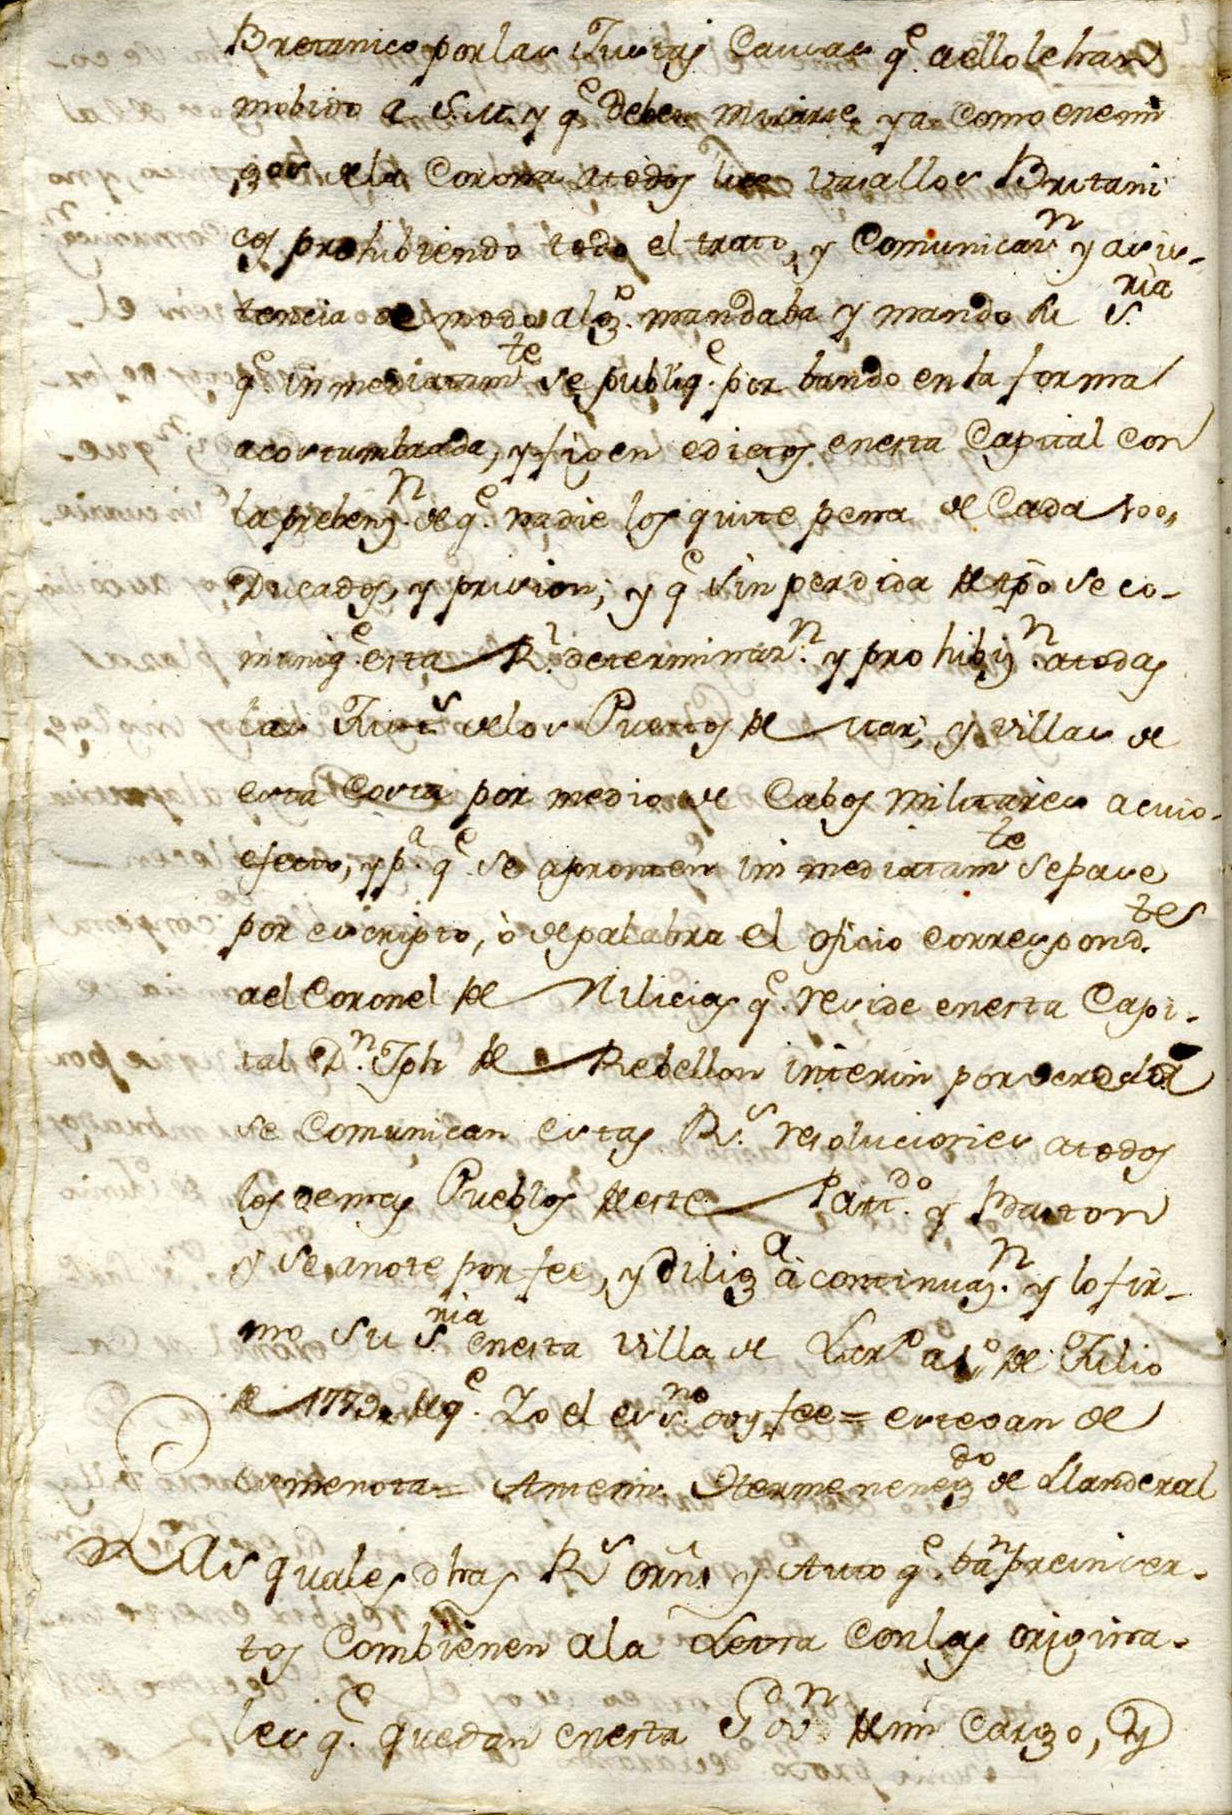 Bretanico por las Justas Causas q.e a ello le han
mobido a S.M. y q.e deben mirarse ya como enemi
gos de la Corona a todos los vasallos Britani
cos prohibiendo todo el trato, y Comunicaz.n y asis-
tencia de modo alg.o mandaba y mando su S.ria
q.e inmediatam.te se publiq.e por bando en la forma
acostumbrada, y figen edictos en esta Capital con
la prebenz.n de q.e nadie los quite pena de Cada 100,,
Ducados, y prision; y q.e sin perdida de tpo se co-
muniq.e esta R.l determinaz.n y prohibiz.n a todas
las Just.s de los Puertos de Mar, y villas de
esta Costa por medio de Cabos Militares a cuio
efecto, y p.a q.e se apronten inmediatam.te se pase
por escripto, ò de palabra el oficio correspond.tes
a el Coronel de Milicias q.e reside en esta Capi-
tal D.n Jph de Rebellon interin por vereda
se Comunican estas R.s resoluciones a todos
los demas Pueblos de este Part.do y Baston
y se anote por fee, y dilig.a à continuaz.n y lo fir-
mo Su S.ria en esta villa de a 1.o de Julio
de 1779,, de q.e Yo el ess.no doy fee = estevan de
esmenota = Antemi Hermeneneg.do de Llanderal
Las quales dhas R.s orñs y Auto q.e ban preinser-
tos Combienen a la Letra con las origina-
les q.e quedan en esta Gov.n de mi Cargo, y